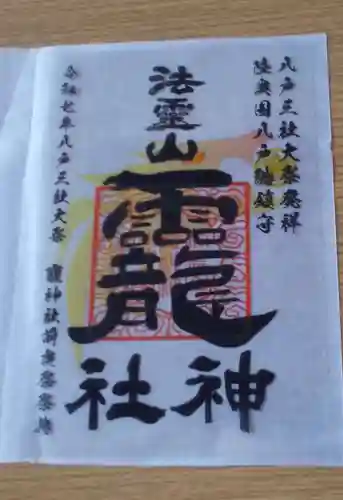 八戸三社大祭發祥
陸奥国八戸総鎮守
法靈山
龗
神社
令和七年八戸三社大祭 龗神社